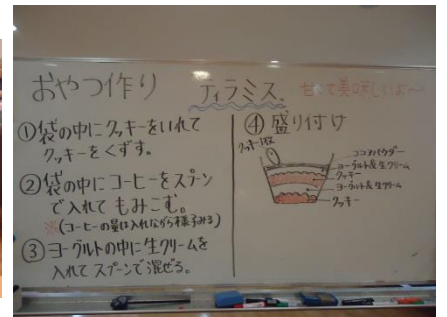 おやつ作り
ティラミス。
甘くて美味しいよ〜
①袋の中にクッキーをいれて
クッキーをくずす。
②袋の中にコーヒーをスプーン
で入れて もみこむ。
※(コーヒーの量は入れながら様子みる)
③ヨーグルトの中に生クリームを
入れて スプーンで混ぜる。
④盛り付け
クッキー1枚
ココアパウダー
ヨーグルト&生クリーム
クッキー
ヨーグルト&生クリーム
クッキー